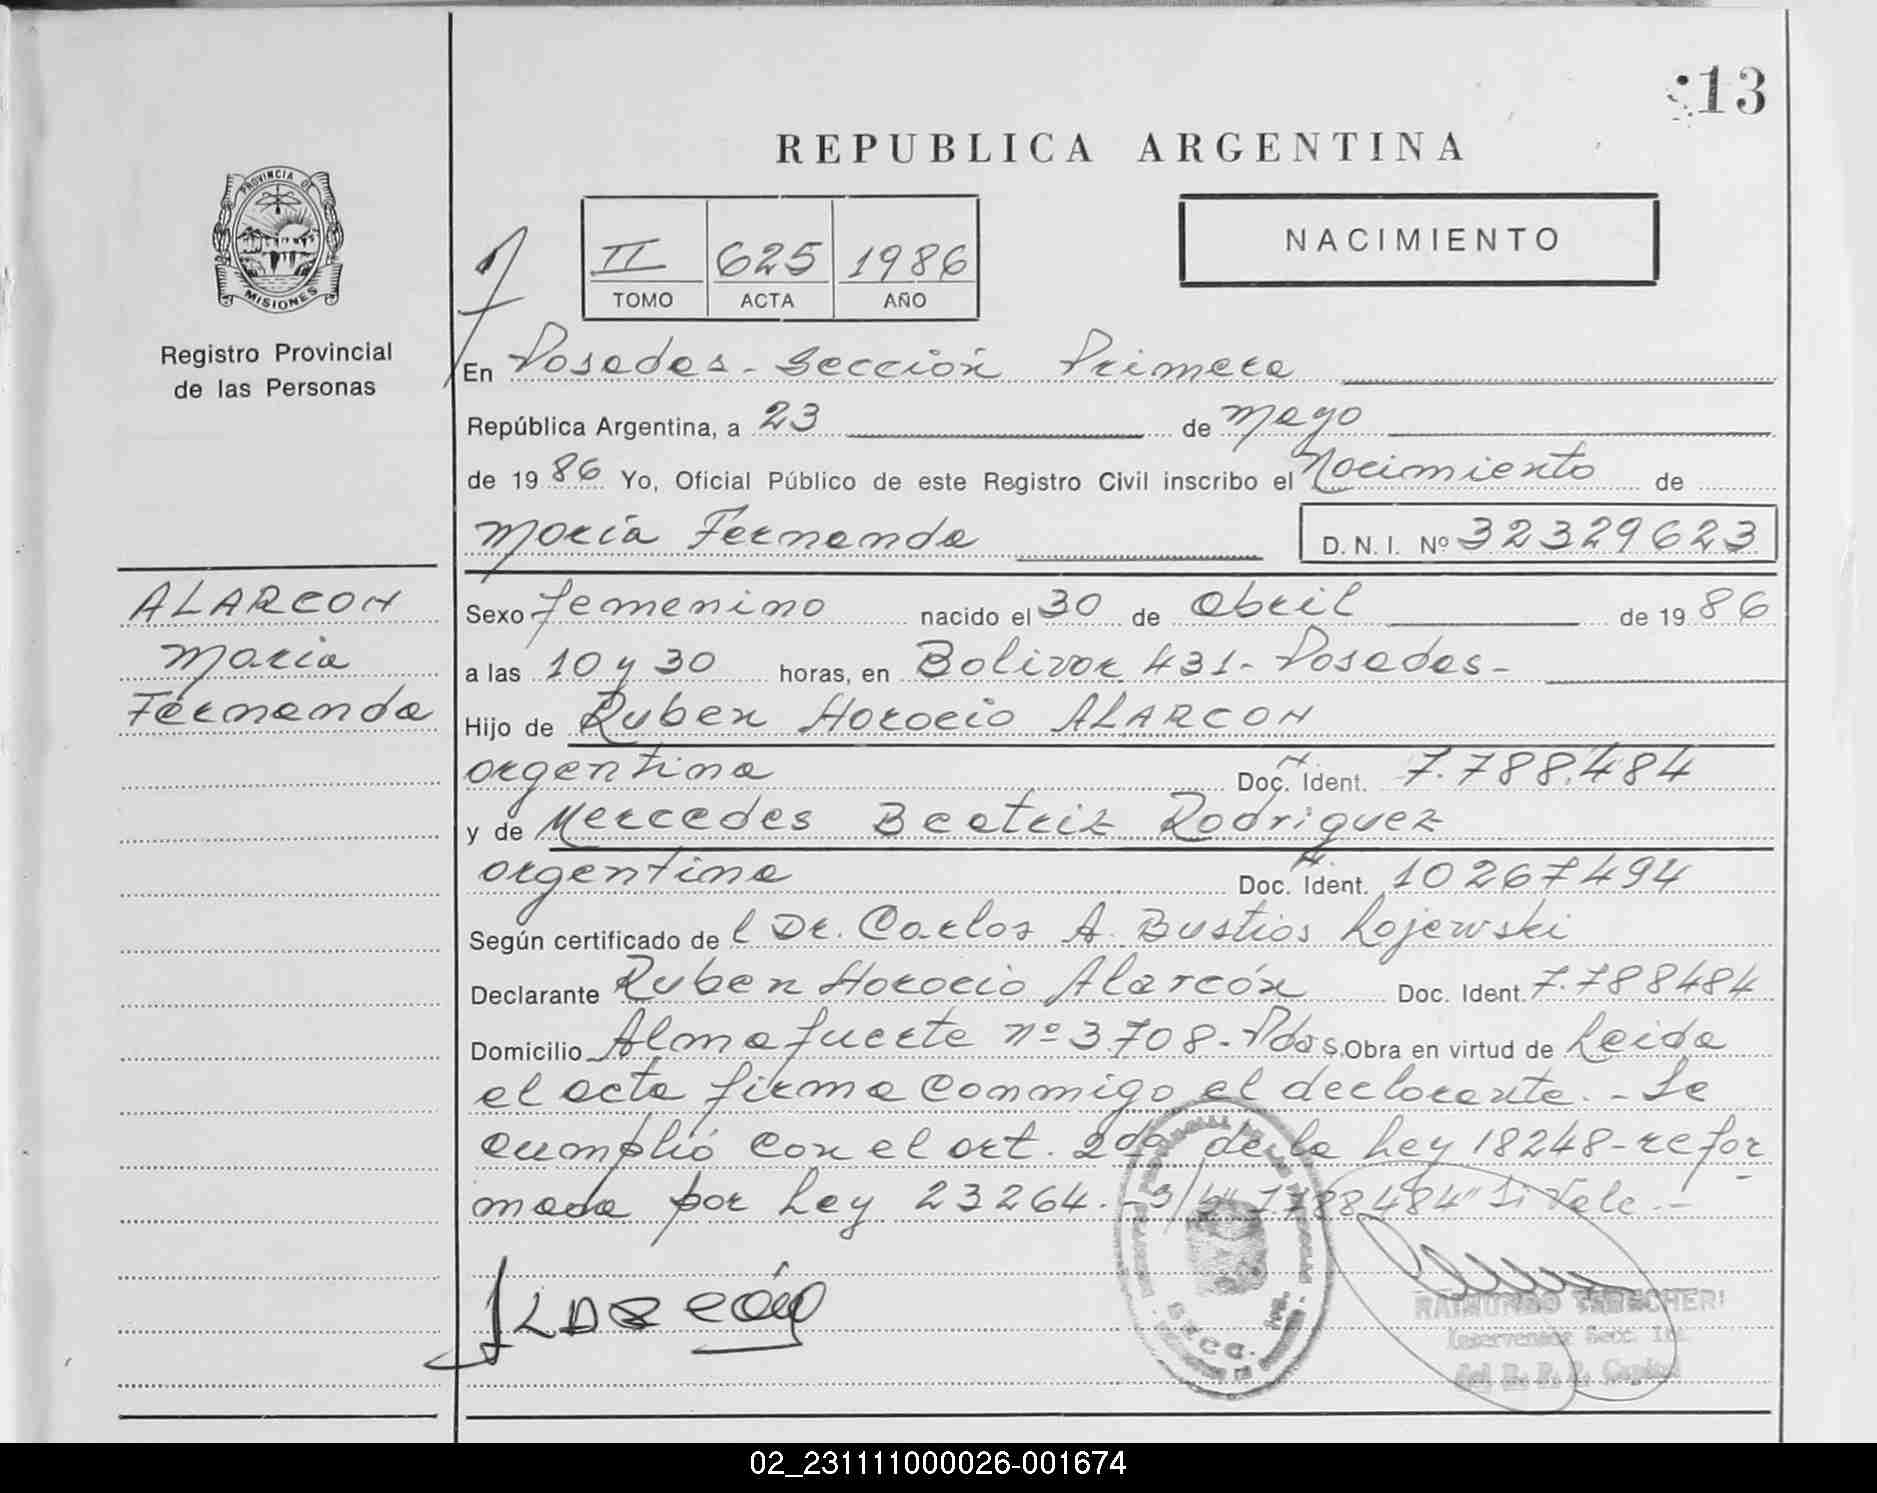 13
REPUBLICA ARGENTINA
PROVINCIA DE
MISIONES
Registro Provincial
de las Personas
II 625 1986
TOMO ACTA AÑO
NACIMIENTO
En Posadas - Sección Primera
República Argentina, a 23 de mayo
de 19 86 Yo, Oficial Público de este Registro Civil inscribo el Nacimiento de
María Fernanda D. N. I. Nº 32329623
ALARCON
Maria
Fernanda
Sexo femenino nacido el 30 de abril de 19 86
a las 10 y 30 horas, en Bolivar 431 - Posadas -
Hijo de Ruben Horacio ALARCON
argentina Doc. Ident. 7.788.484
y de Mercedes Beatriz Rodriguez
argentina Doc. Ident. 10267494
Según certificado de l Dr. Carlos A. Bustios Lojewski
Declarante Ruben Horacio Alarcón Doc. Ident. 7.788484
Domicilio Almafuerte nº 3708 - Pdas. Obra en virtud de Leida
el acta firma conmigo el declarante. - Se
cumplió con el art. 2do de la Ley 18248 - refor
mada por Ley 23264. - S/b "7788484" Si Vale. -
ALARCON
RAIMUNDO
Interventor Secc. 1ra.
del R. P. P. Capital
02_231111000026-001674